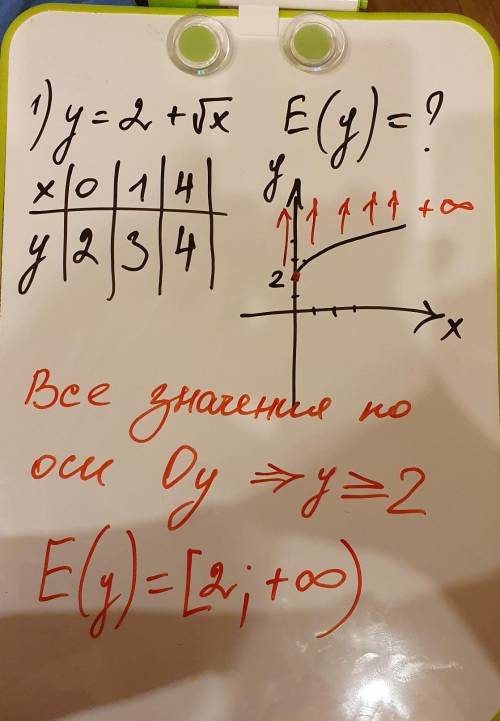 1) y = 2 + √x E(y) = ?
x | 0 | 1 | 4 |
y | 2 | 3 | 4 |
y
+∞
2
x
Все значения по
оси Oy ⇒ y ≥ 2
E(y) = [2; +∞)